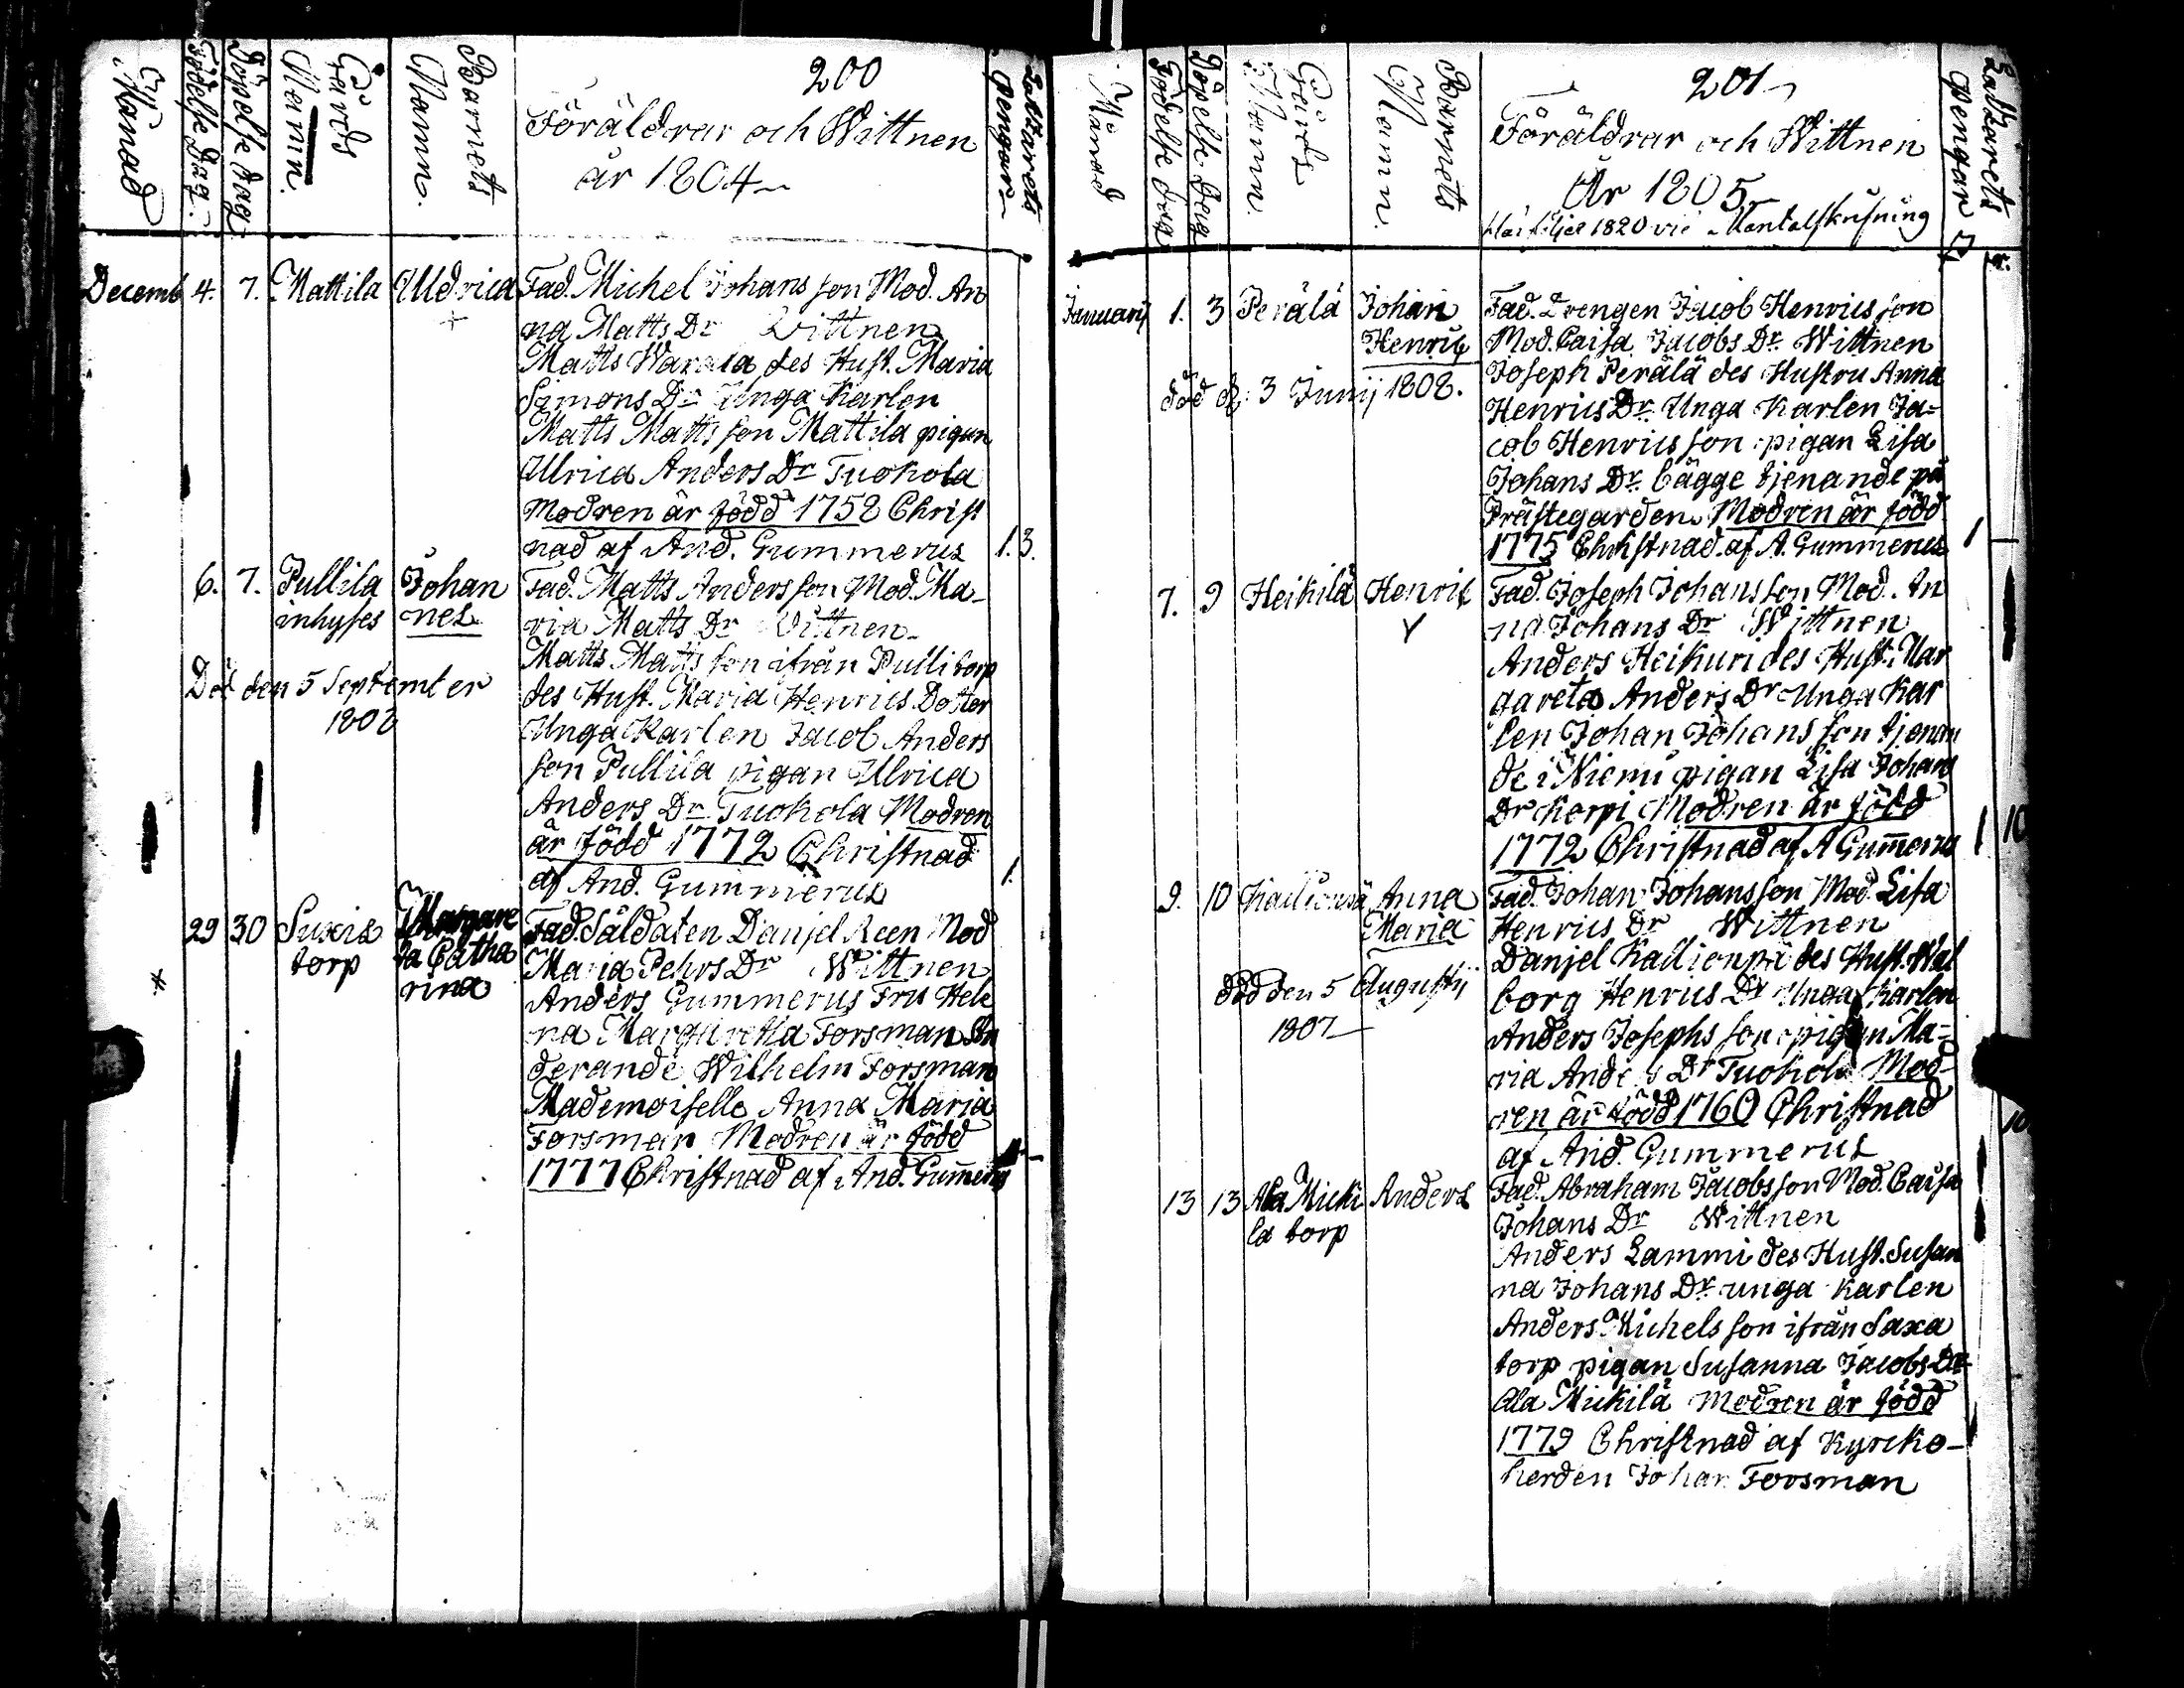 Månad
Födelse Dag.
Döpelse dag
Gårds
Namn.
Barnets
Namn.
200
Föräldrar och Wittnen
år 1804
Lattzarets
Pengar
Decemb 4. 7. Mattila Uldrica Fad. Michel Johans son Mod. An
na Matts Dr Wittnen
Matts Warala des Hust. Maria
Simons Dr Unga Karlen
Matts Matts son Mattila pigan
Ulrica Anders Dr Tuokola
Modren är född 1758 Christ
nad af And. Gummerus 1. 3.
6. 7. Pullila Johan Fad. Matts Anders son Mod. Ma-
inhyses nes ria Matts Dr Wittnen
Matts Matts son ifrån Pulli torp
Död den 5 September des Hust. Maria Henrics Dotter
1808 Unga Karlen Jacob Anders
son Pullila pigan Ulrica
Anders Dr Tuokola Modren
är född 1772 Christnad
af And. Gummerus 1.
29 30 Suxis Margare Fad. Säldaten Danjel Reen Mod
torp ta Catha Maria Pehrs Dr Wittnen
rina Anders Gummerus Fru Hele
na Margaretha Forsman Stu
derande Wilhelm Forsman
Mademoiselle Anna Maria
Forsman Modren är född
1777 Christnad af And. Gummerus
Månad
Födelse dag
Döpelse Dag
Gårds
Namn.
Barnets
Namn.
201
Föräldrar och Wittnen
År 1805
1820 vid Mantalskrifning
Latzarets
Pengar
Januarij 1. 3 Perälä Johan Fad. Drengen Jacob Henrics son
Henric Mod. Caisa Jacobs Dr. Wittnen
död d. 3 Junij 1808. Joseph Perälä des Hustru Anna
Henrics Dr. Unga Karlen Ja=
cob Henrics son pigan Lisa
Johans Dr. bägge tjenande på
Prästegården. Modren är född
1775 Christnad af A. Gummerus 1
7. 9 Heikilä Henric Fad. Joseph Johans son Mod. An
na Johans Dr Wittnen
Anders Heikuri des Hust. Mar
gareta Anders Dr Unga Kar
len Johan Johans son tjenan
de i Niemi pigan Lisa Johans
Dr Korpi Modren är född
1772 Christnad af A Gummerus 1 10
9. 10 Kallionpä Anna Fad. Johan Johans son Mod. Lisa
Maria Henrics Dr Wittnen
Danjel Kallionpä des Hust. Wal
död den 5 Augustij borg Henrics Dr Unga Karlen
1807 Anders Josephs son pigan Ma=
ria Anders Dr Tuokola Mod-
ren är född 1760 Christnad 10
af And. Gummerus
13 13 Ala Micki Anders Fad. Abraham Jacobs son Mod. Caisa
la torp Johans Dr Wittnen
Anders Lammi des Hust. Susan
na Johans Dr. unga Karlen
Anders Michels son ifrån Saxa
torp pigan Susanna Jacobs Dr
Ala Mickilä Modren är född
1779 Christnad af Kyrcko-
herden Johan Forsman